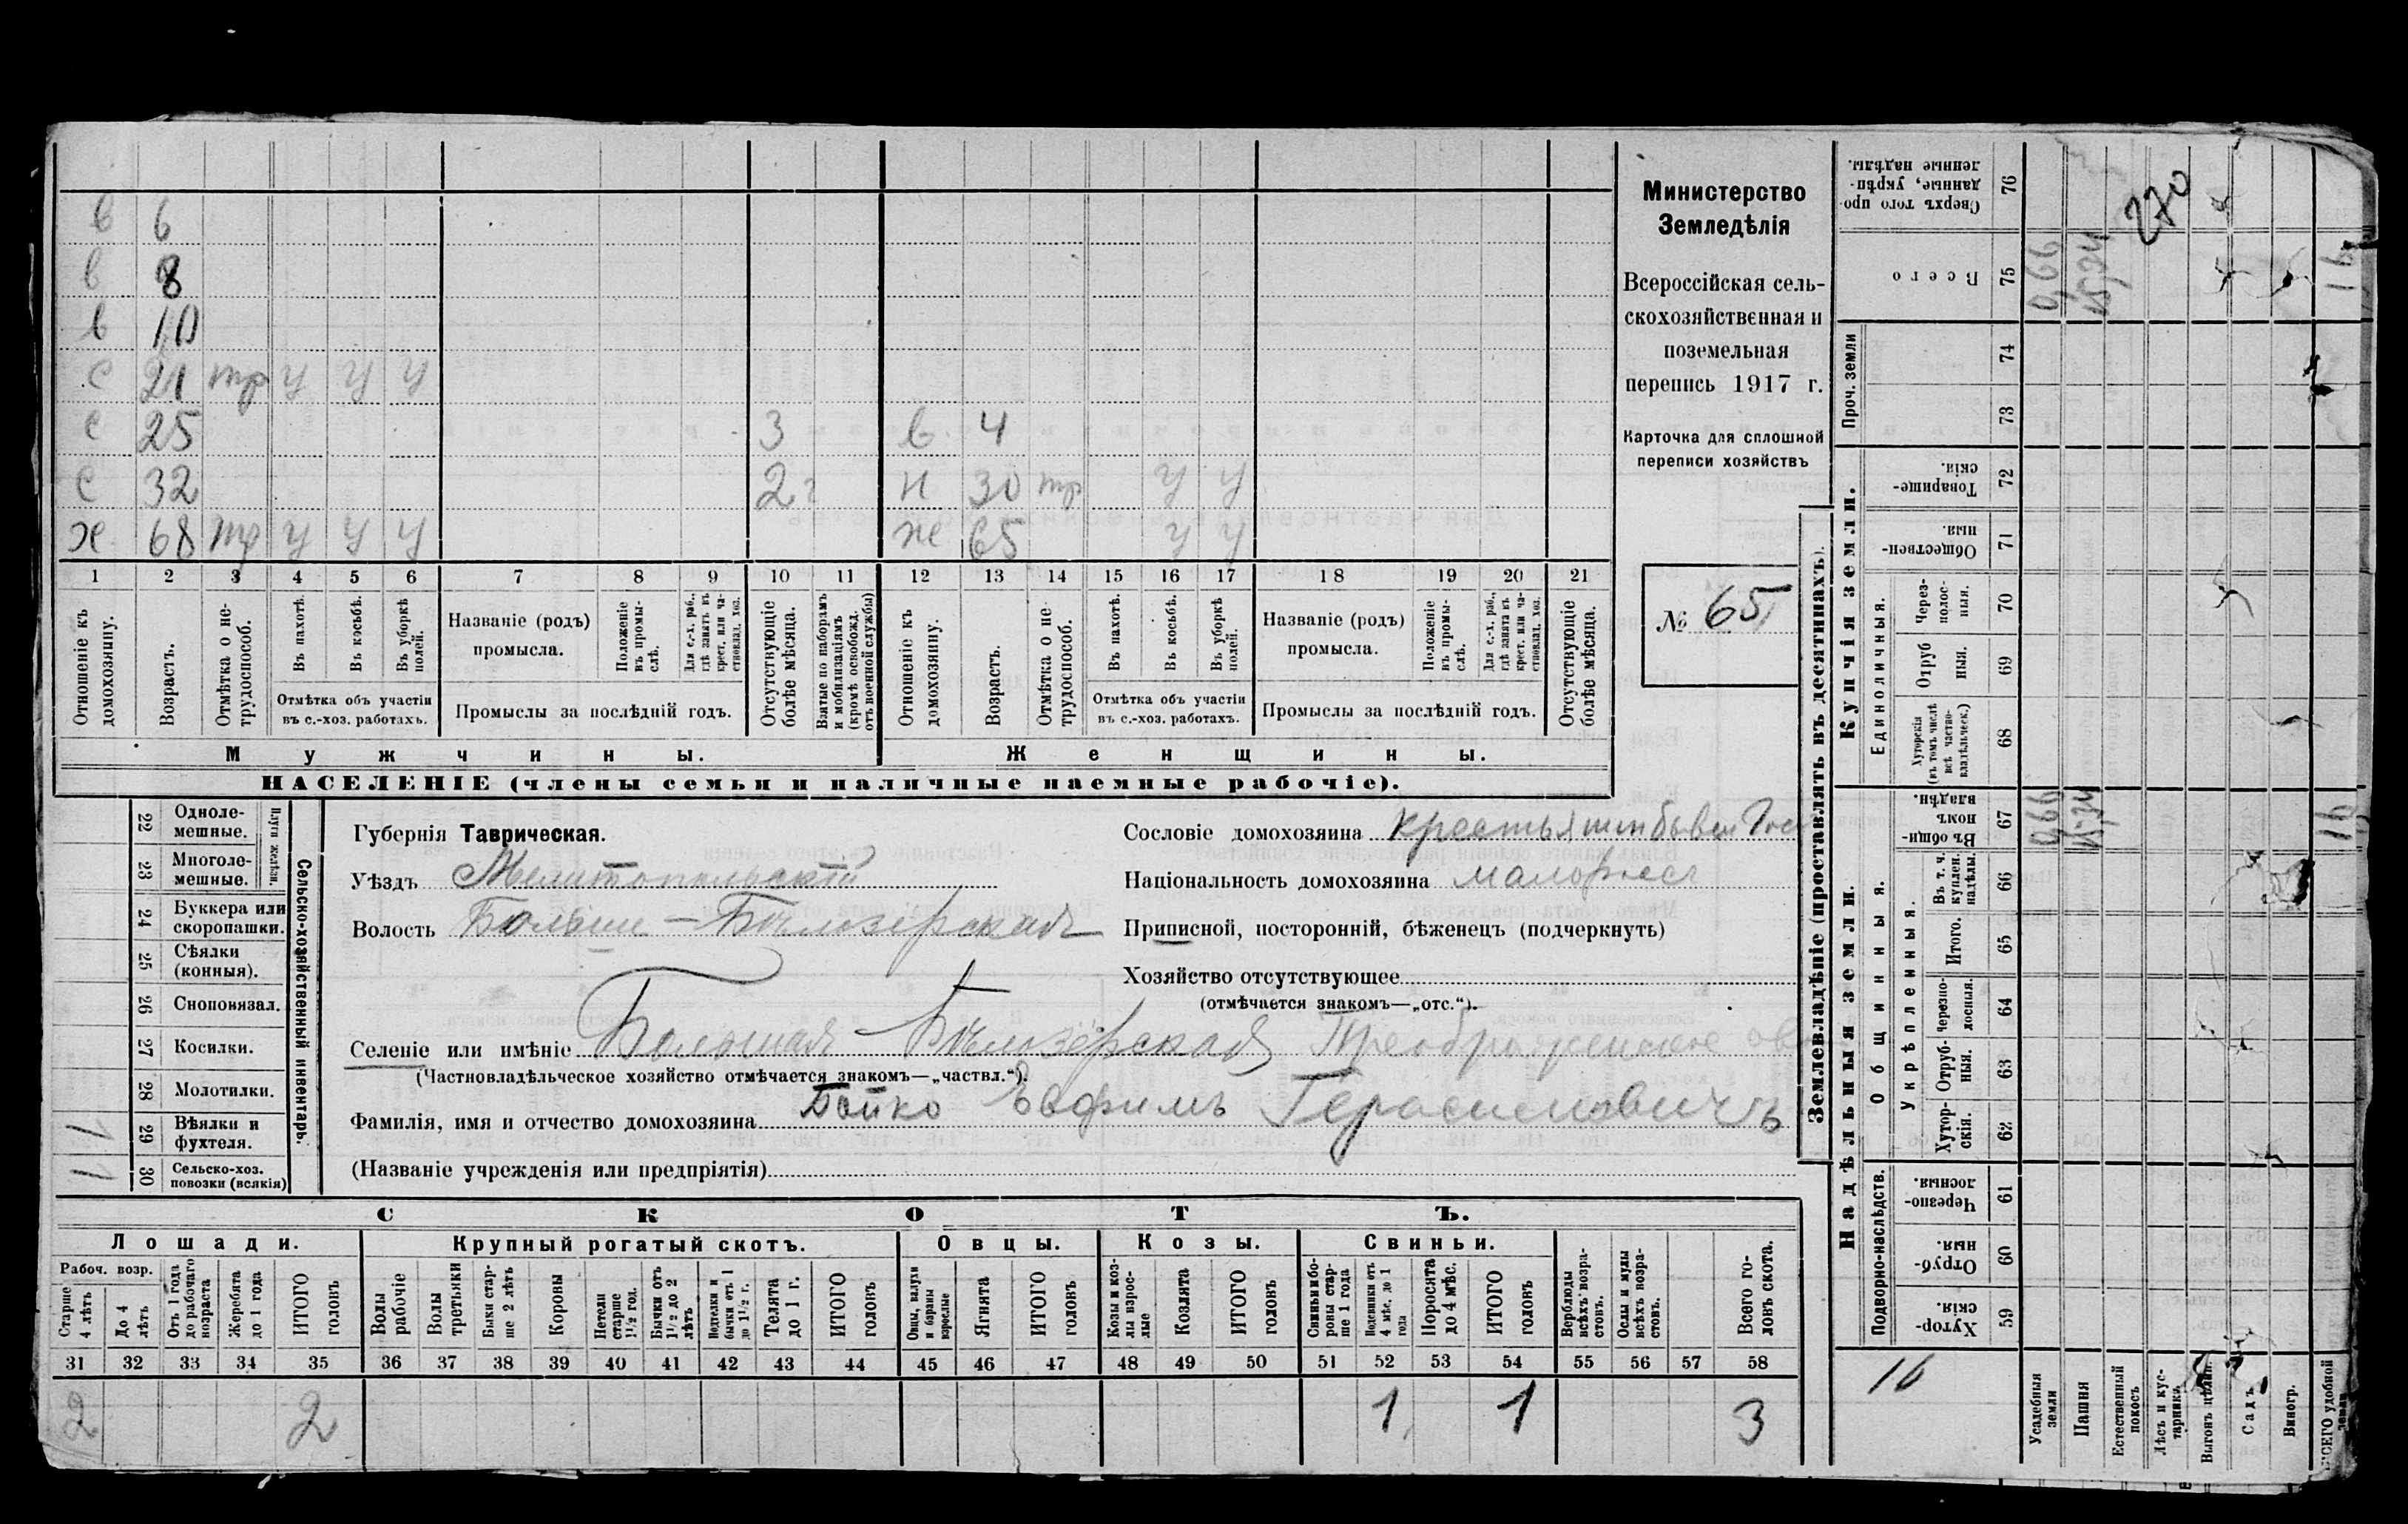 в 6
в 8
в 10
с 21 тр у у у
с 25 3 в 4
с 32 2 г н 30 тр у у
х 68 тр у у у ж 65 у у
1 2 3 4 5 6 7 8 9 10 11 12 13 14 15 16 17 18 19 20 21
Отношеніе къ домохозяину.
Возрастъ.
Отмѣтка о не-трудоспособ.
Въ пахотѣ.
Въ косьбѣ.
Въ уборкѣ полей.
Отмѣтка объ участіи
въ с.-хоз. работахъ.
Названіе (родъ)
промысла.
Положеніе въ промы-слѣ.
Для с.-х. раб., гдѣ занятъ въ крест. или ча-стновлад. хоз.
Промыслы за послѣдній годъ.
Отсутствующіе болѣе мѣсяца.
Взятые по наборамъ и мобилизаціямъ (кромѣ освобожд. отъ военной службы)
Отношеніе къ домохозяину.
Возрастъ.
Отмѣтка о не трудоспособ.
Въ пахотѣ.
Въ косьбѣ.
Въ уборкѣ полей.
Отмѣтка объ участіи
въ с.-хоз. работахъ.
Названіе (родъ)
промысла.
Положеніе въ промы-слѣ.
Для с.-х. раб., гдѣ занята въ крест. или ча-стновлад. хоз.
Промыслы за послѣдній годъ.
Отсутствующіе болѣе мѣсяца.
Мужчины.
Женщины.
НАСЕЛЕНІЕ (члены семьи и наличные наемные рабочіе).
Министерство
Земледѣлія
Всероссійская сель-
скохозяйственная и
поземельная
перепись 1917 г.
Карточка для сплошной
переписи хозяйствъ
№ 65
Сельско-хозяйственный инвентарь.
Плуги желѣзн.
22 Одноле-мешные.
23 Многоле-мешные.
24 Буккера или скоропашки.
25 Сѣялки (конныя).
26 Сноповязал.
27 Косилки.
28 Молотилки.
29 Вѣялки и фухтеля. 1
30 Сельско-хоз. повозки (всякія) 1
Губернія Таврическая.
Уѣздъ Мелитопольскій
Волость Больше-Бѣлозерская
Селеніе или имѣніе Большая-Бѣлозёрская Преображенское
(Частновладѣльческое хозяйство отмѣчается знакомъ—„частвл.“).
Фамилія, имя и отчество домохозяина Бойко Евфимъ Герасимовичъ
(Названіе учрежденія или предпріятія)
Сословіе домохозяина крестьянинъ бывш Гос
Національность домохозяина малоросс
Приписной, посторонній, бѣженецъ (подчеркнуть)
Хозяйство отсутствующее
(отмѣчается знакомъ—„отс.“).
СКОТЪ.
Лошади.
Крупный рогатый скотъ.
Овцы.
Козы.
Свиньи.
Рабоч. возр.
Старше 4 лѣтъ
До 4 лѣтъ
Отъ 1 года до рабочаго возраста
Жеребята до 1 года
ИТОГО головъ
Волы рабочіе
Волы третьяки
Быки стар-ше 2 лѣтъ
Коровы
Нетели старше 1½ год.
Бычки отъ 1½ до 2 лѣтъ
Подтелки и бычки отъ 1 до 1½ г.
Телята до 1 г.
ИТОГО головъ
Овцы, валухи и бараны взрослые
Ягнята
ИТОГО головъ
Козы и коз-лы взрос-лые
Козлята
ИТОГО головъ
Свиньи и бо-ровы стар-ше 1 года
Подсвинки отъ 4 мѣс. до 1 года
Поросята до 4 мѣс.
ИТОГО головъ
Верблюды всѣхъ возра-стовъ.
Ослы и мулы всѣхъ возра-стовъ.
Всего го-ловъ скота.
31 32 33 34 35 36 37 38 39 40 41 42 43 44 45 46 47 48 49 50 51 52 53 54 55 56 57 58
2 2 1 1 3
Землевладѣніе (проставлять въ десятинахъ).
Надѣльныя земли.
Купчія земли.
Проч. земли
Подворно-наслѣдств.
Общинныя.
Укрѣпленныя.
Единоличныя.
Сверхъ того про-данные, укрѣп-ленные надѣлы. 76
Всего 75 0,66 15,34 16
74
73
Товарище-скія. 72
Обществен-ныя 71
Через-полос-ныя. 70
Отруб ныя. 69
Хуторскія (въ томъ числѣ всѣ частно-владѣльческ.) 68
Въ общи-номъ владѣн. 67 0,66 15,34 16
Въ т. ч. куплен. надѣлы. 66
Итого. 65
Черезпо-лосныя. 64
Отруб-ныя. 63
Хутор-скія. 62
Черезпо-лосныя. 61
Отруб-ныя. 60
Хутор-скія. 59
270
16
Усадебныя земли
Пашня
Естественный покосъ
Лѣсъ и кус-тарникъ
Выгонъ цѣлин.
Садъ
Виногр.
ВСЕГО удобной земли